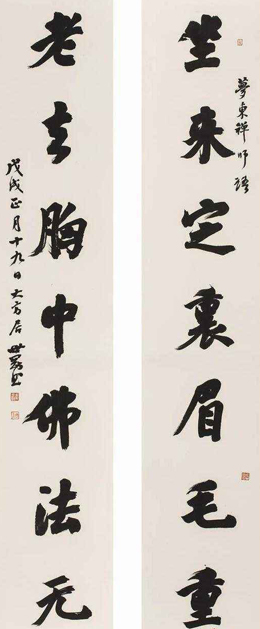 坐来定裏眉毛重
夢東禅师语
老去胸中佛法无
戊戌正月十九日大方居